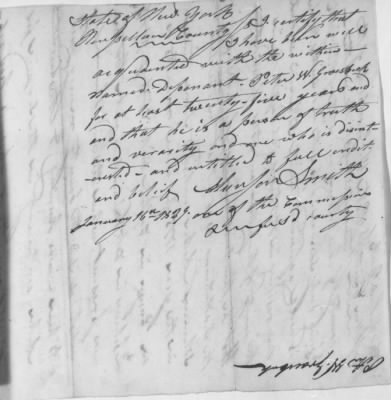 State of New York
Rensselaer County ss I certify that
I have been well
acquainted with the within
named Deponant Peter W. Groesbeck
for at least twenty-five years and
and that he is a person of truth
and verasity and one who is disint-
-erested and entitled to full credit
and belief
Smith
January 16th 1829. one of the Commissioners
county
Peter W. Groesbeck